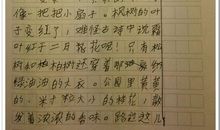 像一把把小扇子。枫树的叶
子变红了，难怪古诗中说霜
叶红于二月花呢！只有松
树和柏树还穿着那
绿油油的大衣。公园里黄黄
的、米子般大小的桂花，散
发着浓浓的香味。路经这儿